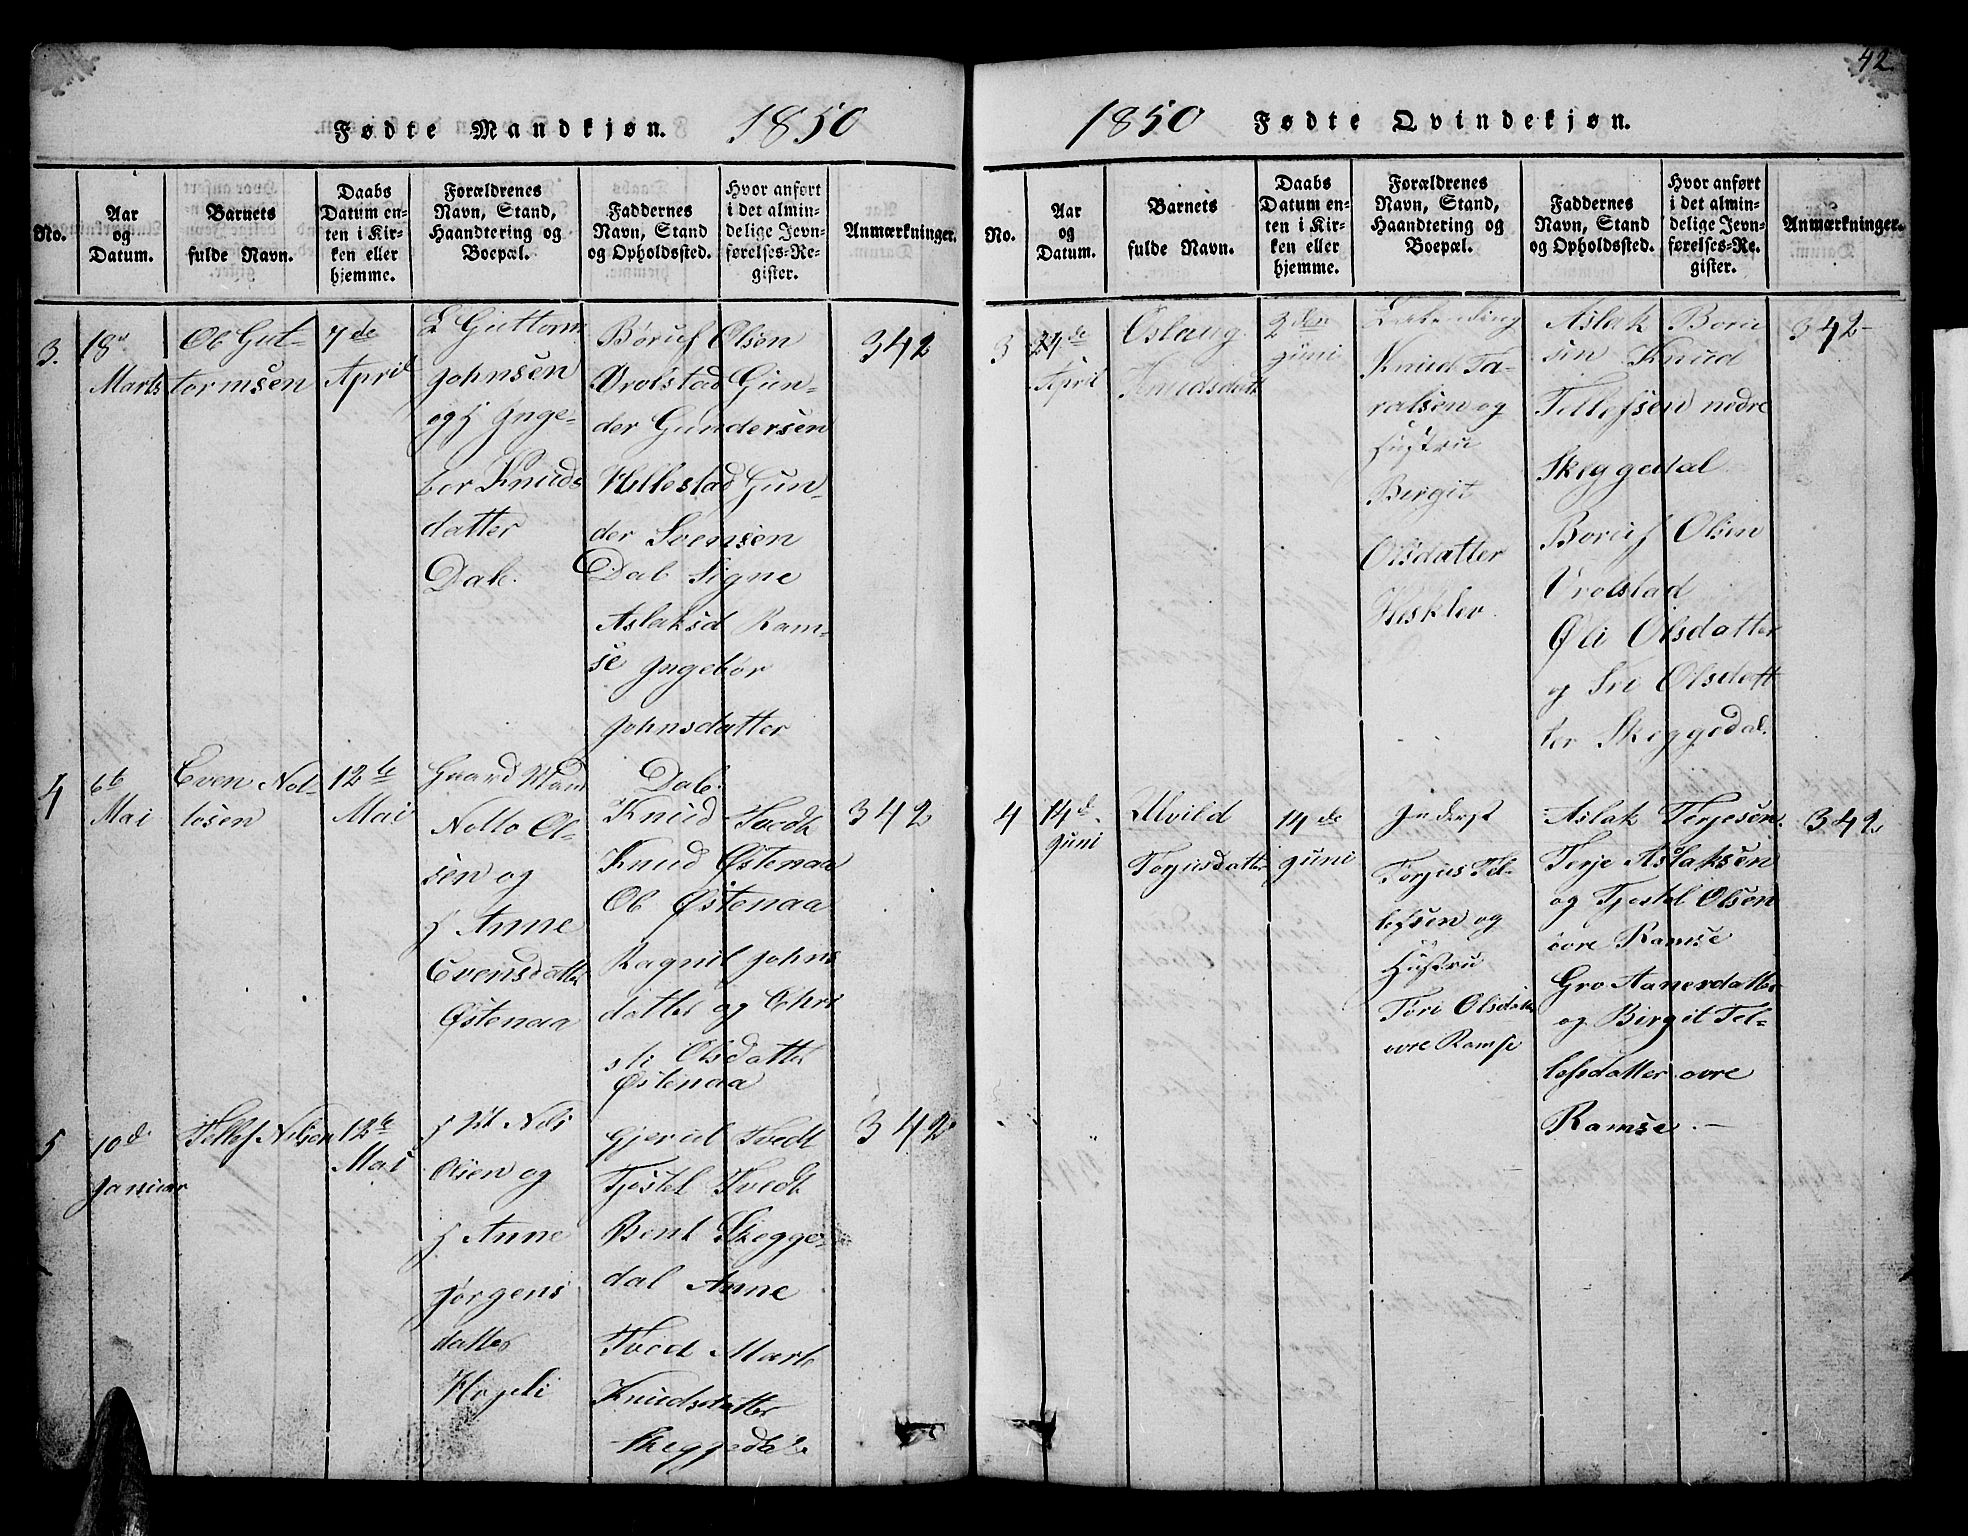 42
Fødte Mandkjøn. 1850
No.
Aar
og
Datum.
Barnets
fulde Navn.
Daabs
Datum en-
ten i Kir-
ken eller
hjemme.
Forældrenes
Navn, Stand,
Haandtering og
Boepæl.
Faddernes
Navn, Stand
og Opholdssted.
Hvor anført
i det almin-
delige Jevn-
førelses-Re-
gister.
Anmærkninger.
3.
18
Marts
Ole Gut-
tormsen
7de
April
Guttorm
Johnsen
og H Inge-
bor Knuds
datter
Dale.
Børuf Olsen
Vrolstad Gun-
der Gundersen
Hillestad Gun-
der Svensen
Dale Signe
Aslaksd Ram-
se Ingebor
Johnsdatter
Dale.
342
4
6te
Mai
Even Nol-
tosen
12te
Mai
Gaard Mand
Nolto Ol-
sen og
H Anne
Evensdatter
Østenaa
Knud Tvedt
Knud Østenaa
Ole Østenaa
Ragnil Johns
datter og Chri
sti Olsdatter
Østenaa
342
5
10de
Januar
Tellef Nilsen
12te
Mai
Nils
Olsen og
H. Anne
Jørgens
datter
Hogeli
Gjerul Tvedt
Tjostel Tvedt
Bent Skegge-
dal Anne
Tvedt Marte
Knudsdatter
Skeggedal.
342
1850 Fødte Qvindekjøn.
No.
Aar
og
Datum.
Barnets
fulde Navn.
Daabs
Datum en-
ten i Kir-
ken eller
hjemme.
Forældrenes
Navn, Stand,
Haandtering og
Boepæl.
Faddernes
Navn, Stand
og Opholdssted.
Hvor anført
i det almin-
delige Jevn-
førelses-Re-
gister.
Anmærkninger.
3
April
Oslaug
Knudsdatt
2den
Juni
Knud Ta-
ralsen og
Hustru
Birgit
Olsdatter
Hesklev.
Aslak Boru
sen Knud
Tellefsen nedre
Skeggedal
Boruf Olsen
Vrolstad
Øli Olsdatter
og Sri Olsdatt
ter Skeggedal.
342
4
14d.
Juni
Alvild
Torjusdatter
14de
Juni
Inderst
Torjus Tel-
lefsen og
Hustru
Tori Olsdatter
ovre Ramse
Aslak Terjesen.
Terje Aslaksen
og Tjostel Olsen
ovre Ramse
Gro Aanersdatter
og Birgit Tel-
lefsdatter ovre
Ramse.
342